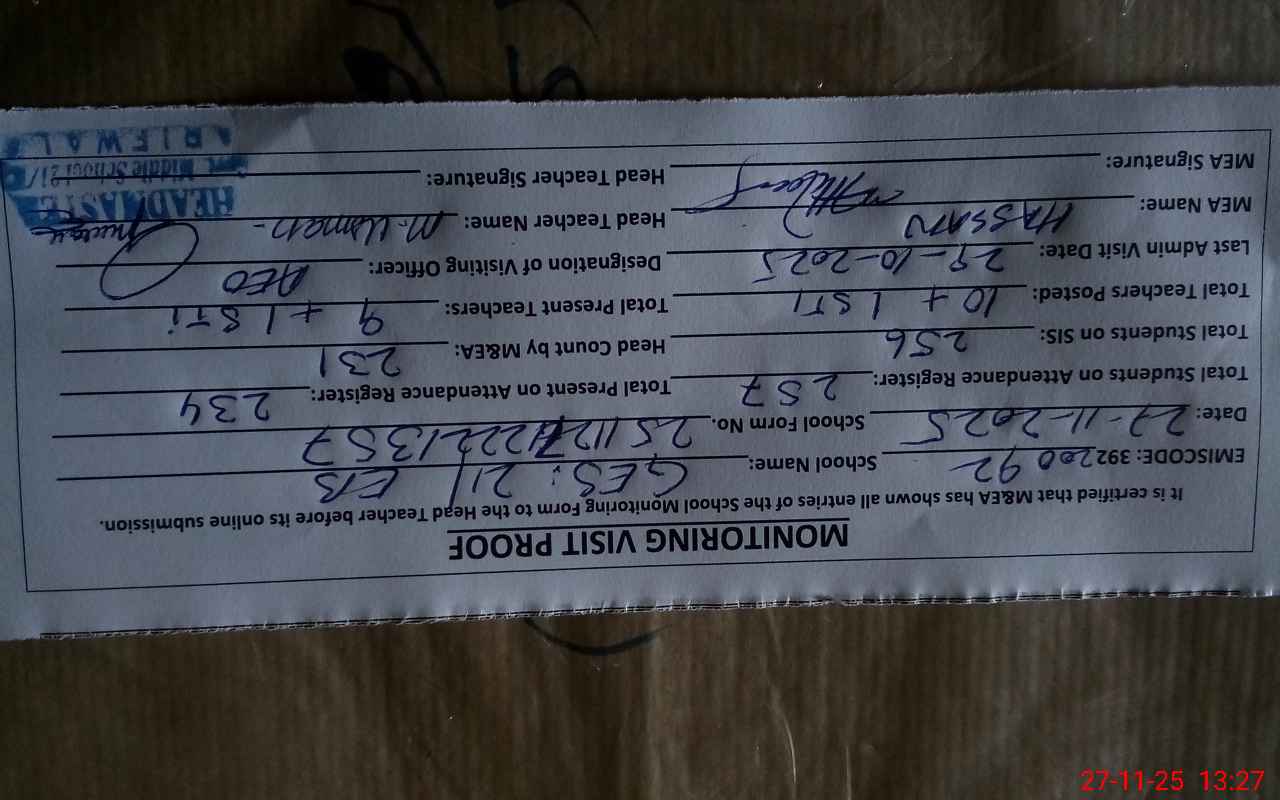 MONITORING VISIT PROOF
It is certified that M&EA has shown all entries of the School Monitoring Form to the Head Teacher before its online submission.
EMISCODE: 39220092 School Name: GES: 21/ EB
Date: 27-11-2025 School Form No. 2511271222213 57
Total Students on Attendance Register: 257 Total Present on Attendance Register: 234
Total Students on SIS: 256 Head Count by M&EA: 231
Total Teachers Posted: 10 + 1 STI Total Present Teachers: 9 + 1 STi
Last Admin Visit Date: 29-10-2025 Designation of Visiting Officer: AEO
MEA Name: HASSAN Head Teacher Name: M. Usman
MEA Signature: Head Teacher Signature:
HEADMASTER
Govt. Middle School 21/
ARIFWAL
27-11-25 13:27